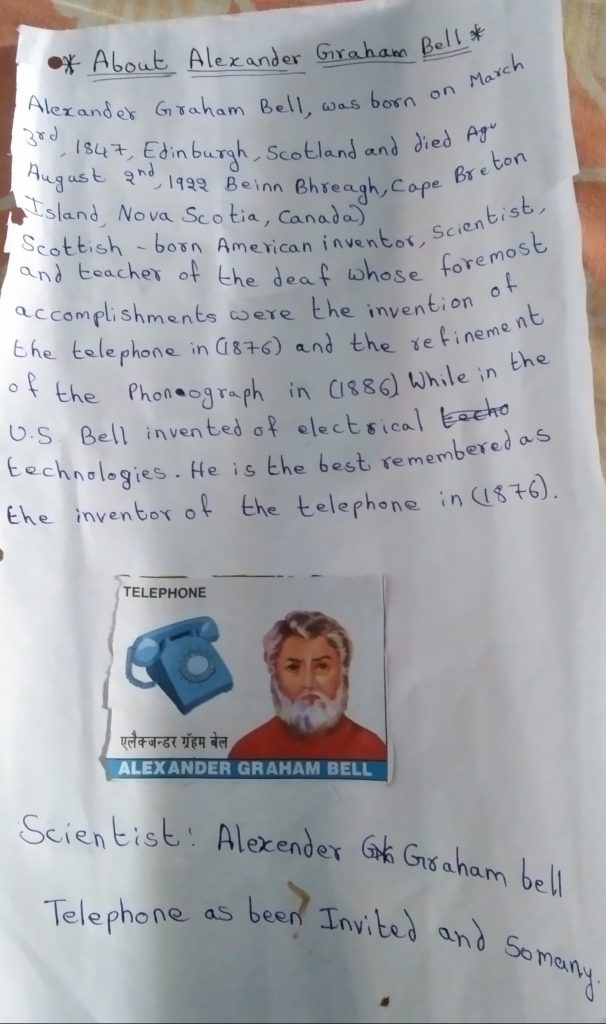 * About Alexander Graham Bell *
Alexander Graham Bell, was born on March
3rd, 1847, Edinburgh, Scotland and died Agu
August 2nd, 1922 Beinn Bhreagh, Cape Breton
Island, Nova Scotia, Canada)
Scottish - born American inventor, Scientist,
and teacher of the deaf whose foremost
accomplishments were the invention of
the telephone in (1876) and the refinement
of the Phonograph in (1886) While in the
U.S. Bell invented of electrical techo
technologies. He is the best remembered as
the inventor of the telephone in (1876).
TELEPHONE
एलैक्जन्डर ग्रॅहम बेल
ALEXANDER GRAHAM BELL
Scientist: Alexender Graham bell
Telephone as been Invited and Somany.